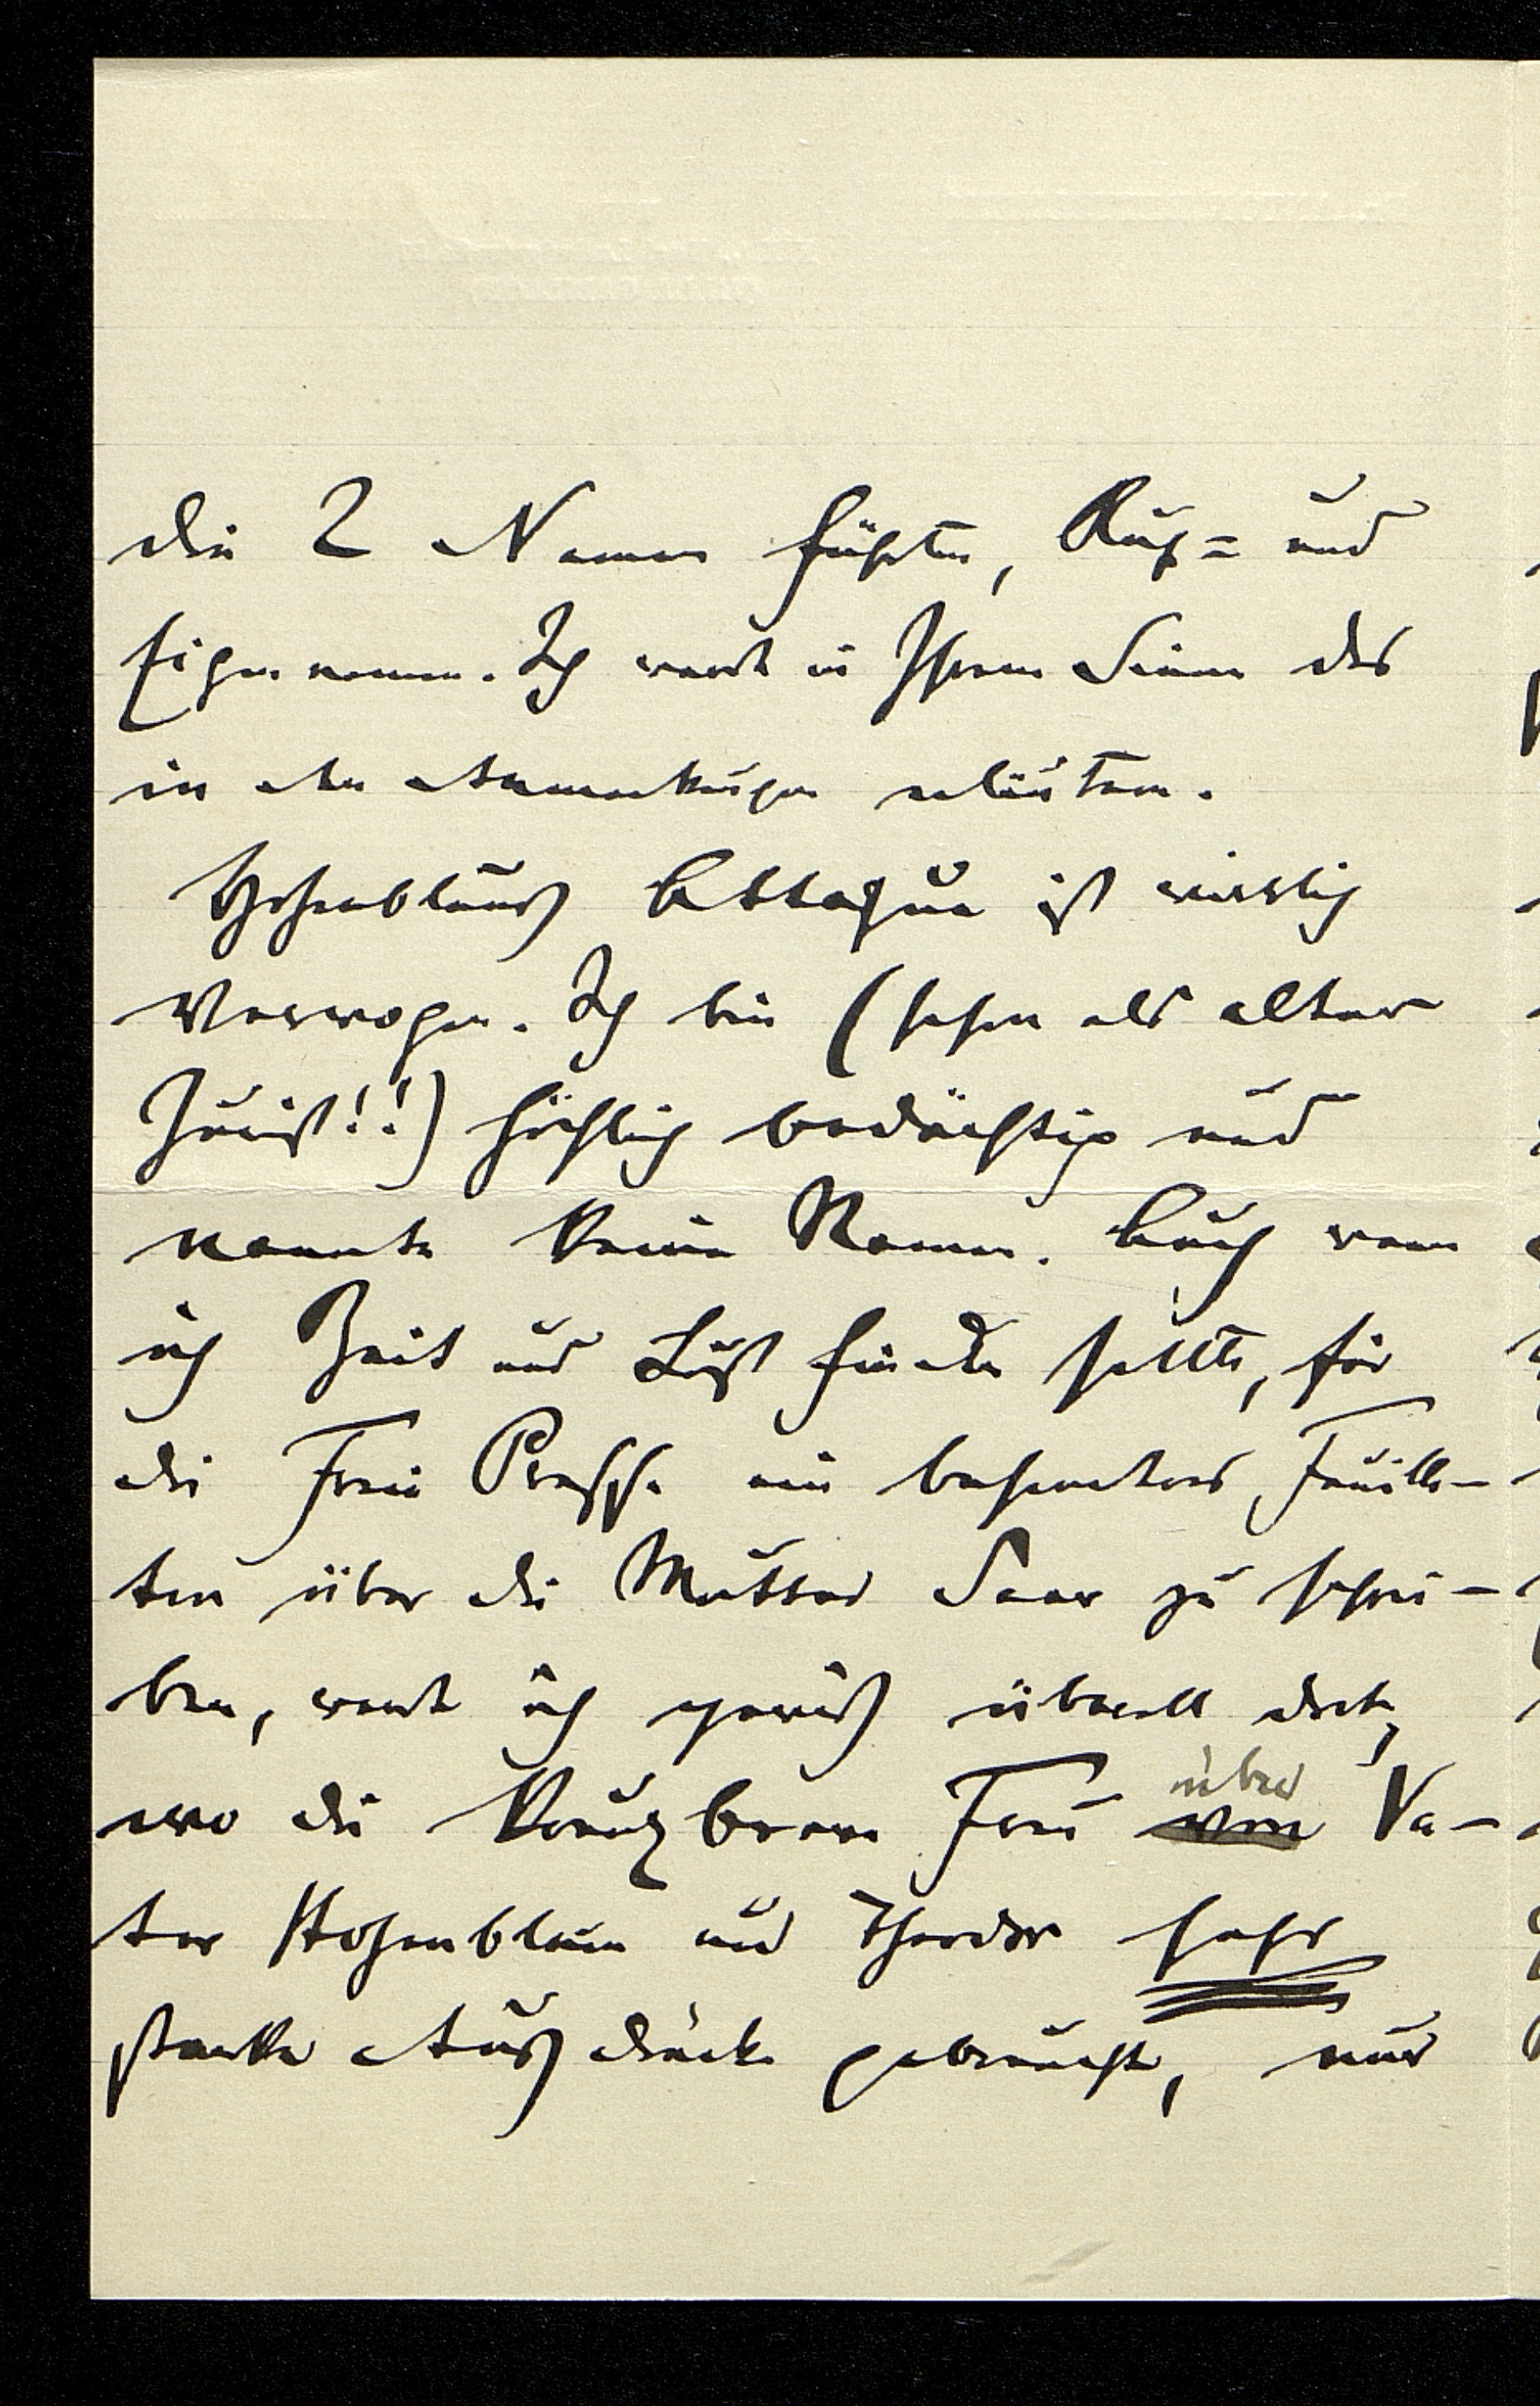 die 2 Namen führten, Ruf- und
Eigennamen. Ich werde in Ihrem Sinne das
in den Anmerkungen erläutern.
Hohenblums Attaque ist wirklich
verwogen. Ich bin (schon als alter
Jurist!!) höchlich bedächtig und
nannte keine Namen. Auch wenn
ich Zeit und Lust finden sollte, für
die Freie Presse ein besonderes Feuille-
ton über die Mutter Saar zu schrei-
ben, werde ich gewiß überall dort,
wo die kreuzbrave Frau von über Va-
ter Hohenblum und Theodor sehr
starke Ausdrücke gebraucht, nur